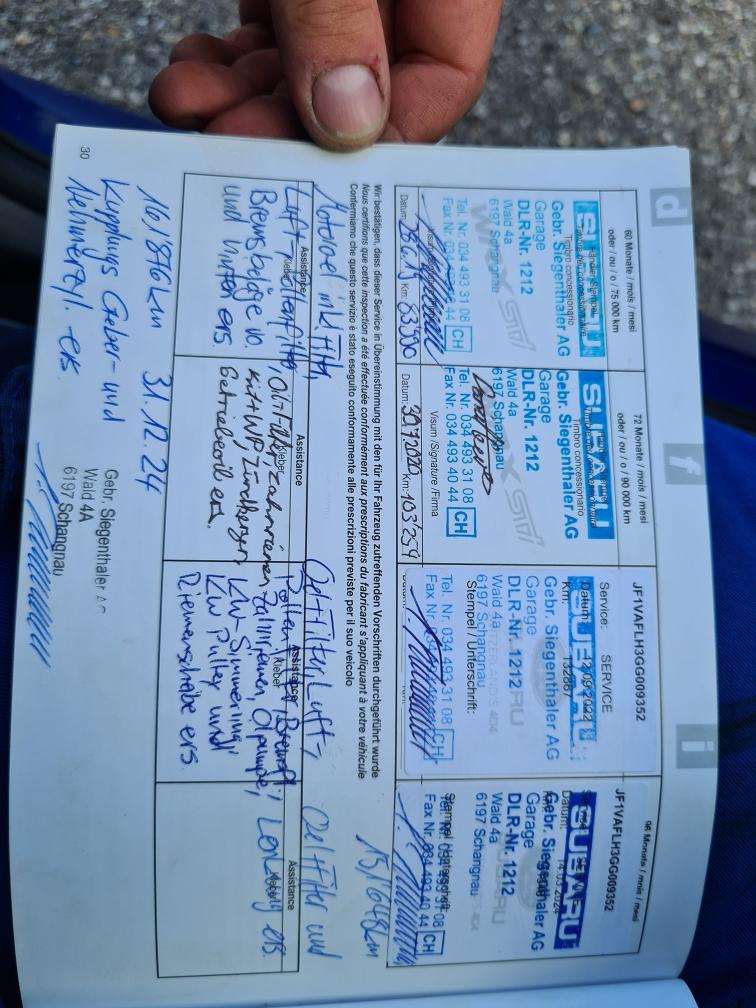 d
f
i
60 Monate / mois / mesi
oder / ou / o / 75 000 km
SUBARU
Timbro concessionario
Gebr. Siegenthaler AG
Garage
DLR-Nr. 1212
Wald 4a
6197 Schangnau
Tel. Nr. 034 493 31 08
Fax Nr. 034 493 40 44 CH
Datum: Km: 83'590
72 Monate / mois / mesi
oder / ou / o / 90 000 km
SUBARU
Timbro concessionario
Gebr. Siegenthaler AG
Garage
DLR-Nr. 1212
Wald 4a
6197 Schangnau
Tel. Nr. 034 493 31 08
Fax Nr. 034 493 40 44 CH
Visum /Signature /Firma
Datum: 30.7.2020 Km: 103'259
JF1VAFLH3GG009352
Service: SERVICE
Datum: 12.09.2022
Km: 132867
SUBARU
Gebr. Siegenthaler AG
Garage
DLR-Nr. 1212
Wald 4a
6197 Schangnau
Stempel / Unterschrift:
Tel. Nr. 034 493 31 08
Fax Nr. 034 493 40 44 CH
96 Monate / mois / mesi
JF1VAFLH3GG009352
SERVICE
Datum: 14.03.2024
SUBARU
Gebr. Siegenthaler AG
Garage
DLR-Nr. 1212
Wald 4a
6197 Schangnau
Stempel / Unterschrift:
Tel. Nr. 034 493 31 08
Fax Nr. 034 493 40 44 CH
151'648km
Wir bestätigen, dass dieser Service in Übereinstimmung mit den für Ihr Fahrzeug zutreffenden Vorschriften durchgeführt wurde
Nous certifions que cette inspection a été effectuée conformément aux prescriptions du fabricant s'appliquant à votre véhicule
Confermiamo che questo servizio è stato eseguito conformamente alle prescrizioni previste per il suo veicolo
Assistance
Kleber
Motoroel ink. Filter,
Luft-, Pollenfilter
Bremsbeläge vo.
und hinten ers.
Assistance
Kleber
Oil+Filter, Zahnriemen
Kitt+WP, Zündkerzen
Getriebeoil ers.
Assistance
Kleber
Oel+Filter, Luft-,
Pollen
Zahnriemen, Ölpumpe,
KW-Simmering
KW Pulley und
Riemenscheibe ers.
Assistance
Kleber
Oel+Filter und
ers.
161'816km 31.12.24
Kupplungs Geber- und
Nehmerzyl. ers.
Gebr. Siegenthaler AG
Wald 4A
6197 Schangnau
30